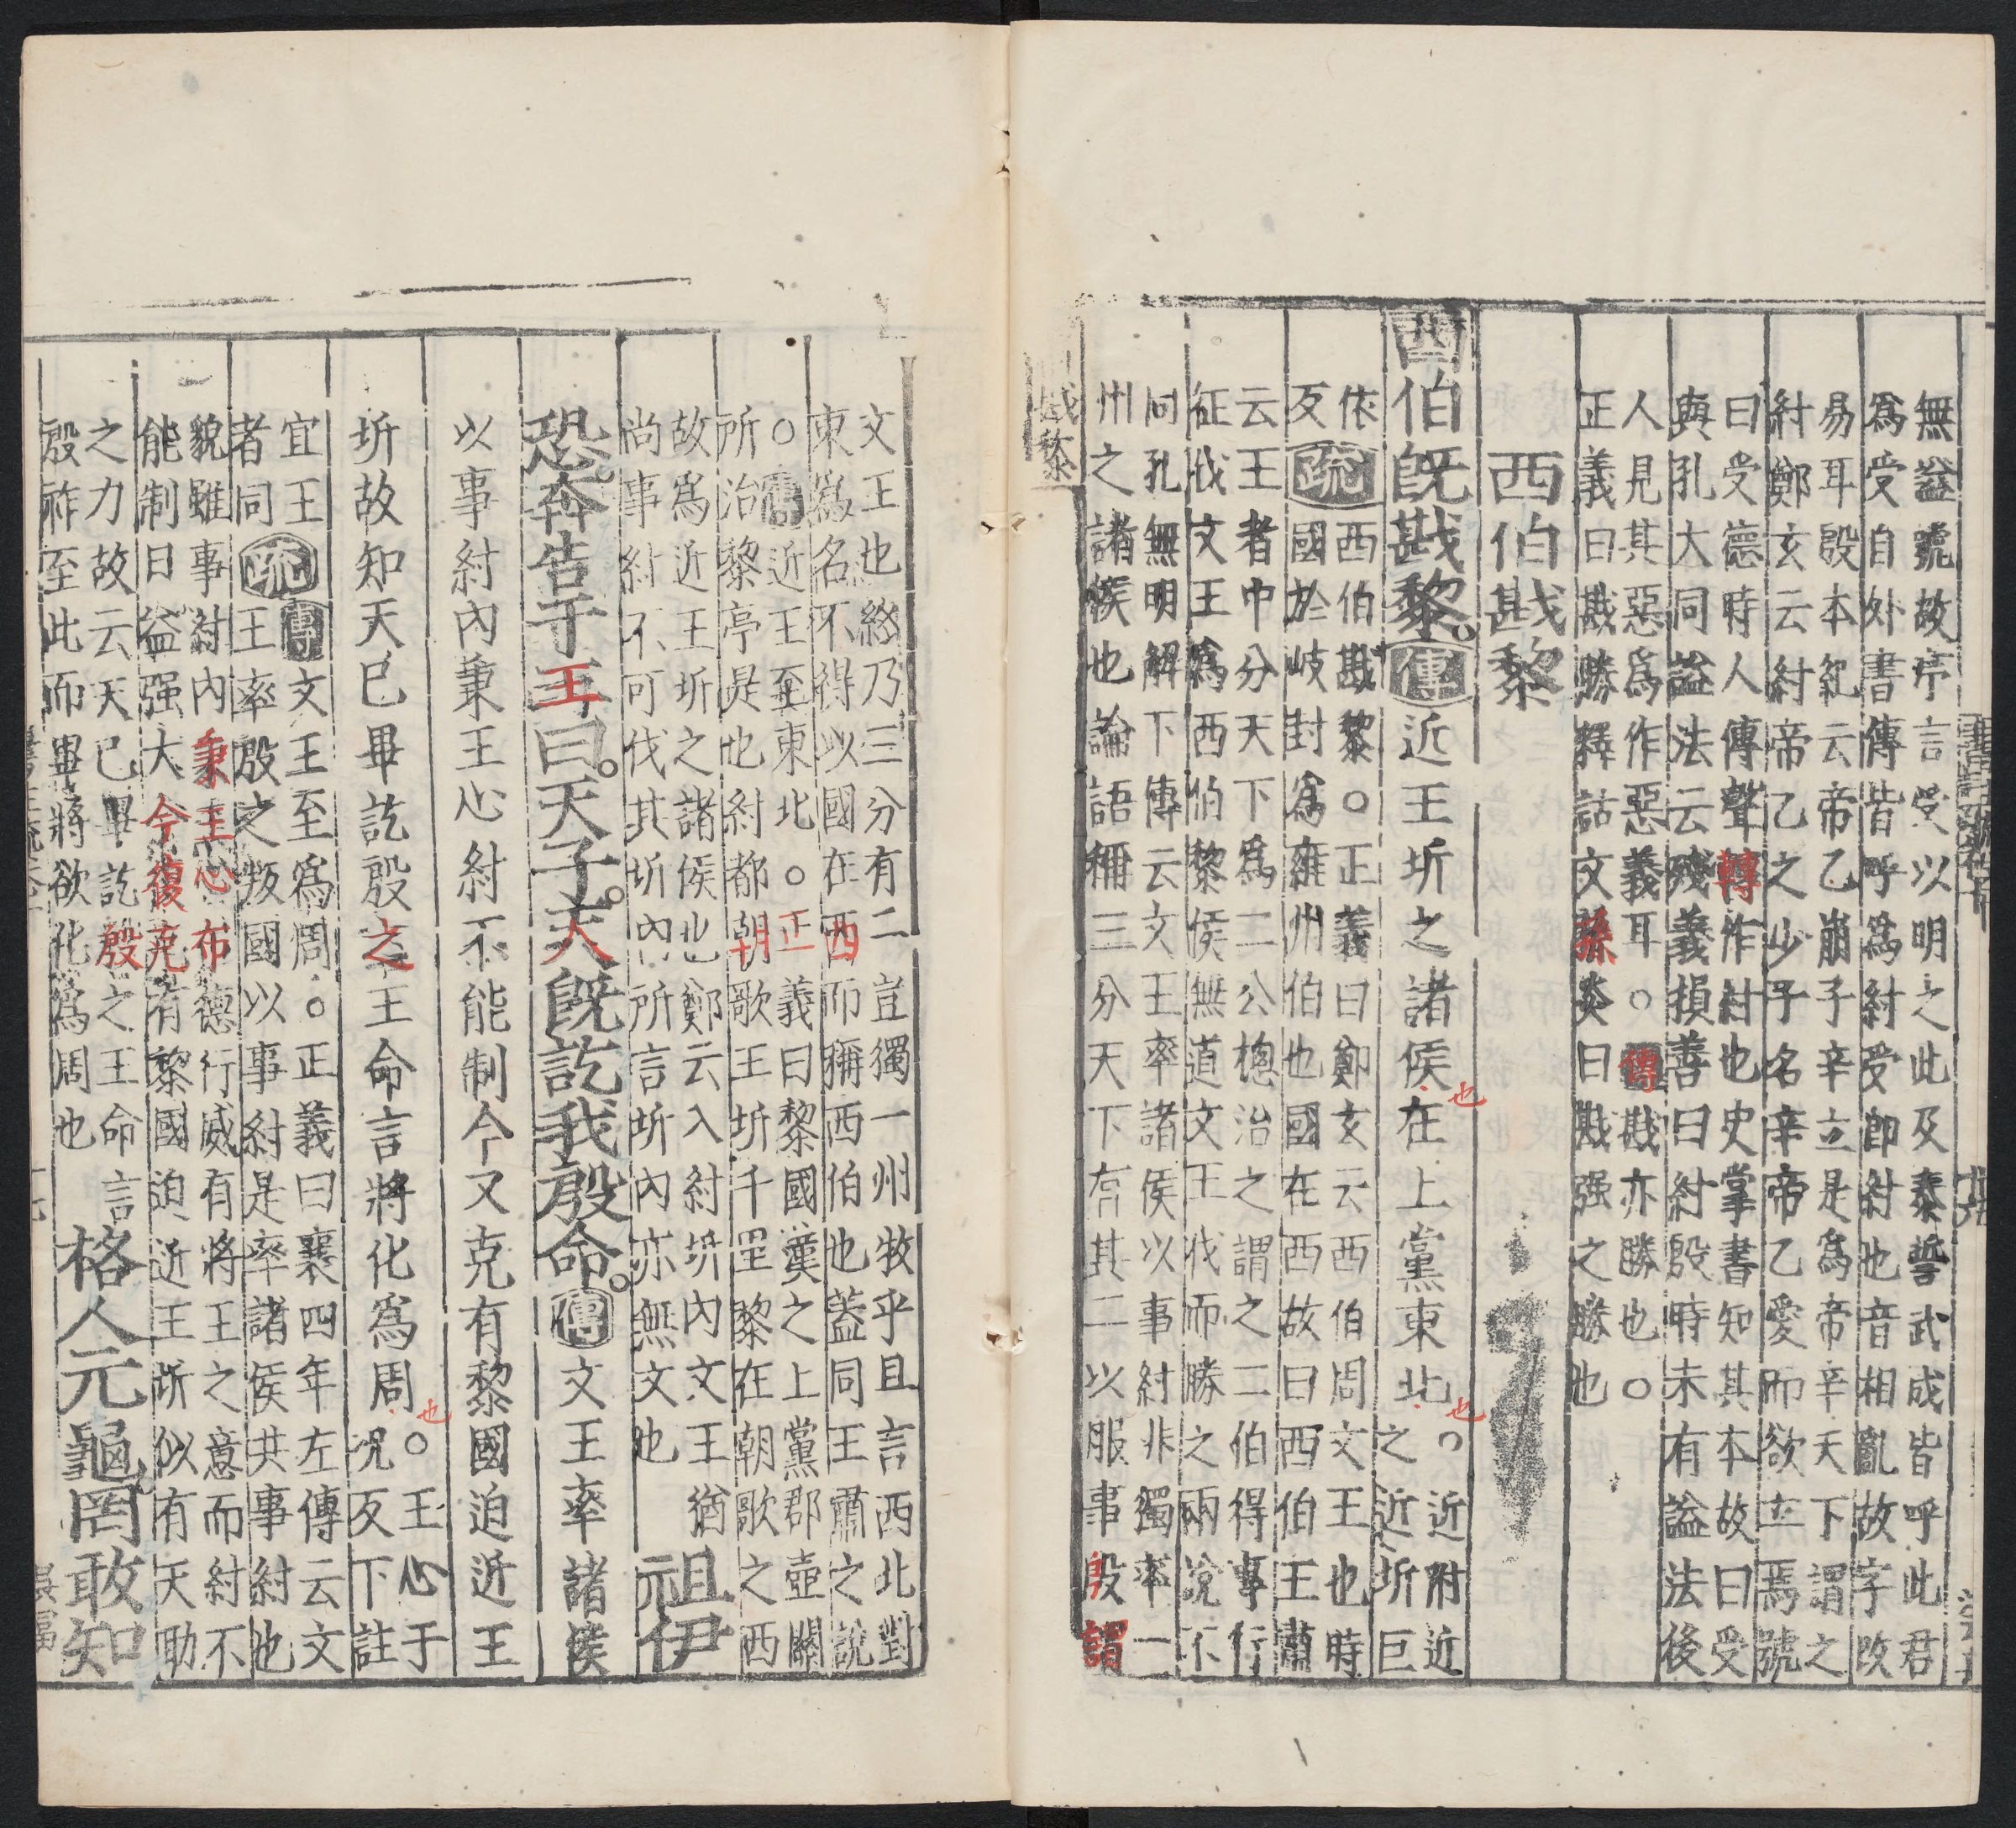 無謚號故序言受以明之此及泰誓武成皆呼此君
爲受自外書傳皆呼爲紂受即紂也音相亂故字改
易耳殷本紀云帝乙崩子辛立是爲帝辛天下謂之
紂鄭玄云紂帝乙之少子名辛帝乙愛而欲立焉號
曰受德時人傳聲轉作紂也史掌書知其本故曰受
與孔大同謚法云殘義損善曰紂殷時未有謚法後
人見其惡爲作惡義耳○傳戡亦勝也○
正義曰戡勝釋詁文孫炎曰戡强之勝也
西伯戡黎
西伯旣戡黎傳近王圻之諸侯也在上黨東北也○近附近
之近圻巨
依
反疏西伯戡黎○正義曰鄭玄云西伯周文王也時
國於岐封爲雍州伯也國在西故曰西伯王肅
云王者中分天下爲二公總治之謂之二伯得專行
征伐文王爲西伯黎侯無道文王伐而勝之兩說不
同孔無明解下傳云文王率諸侯以事紂非獨率一
州之諸侯也論語稱三分天下有其二以服事殷謂
戡黎
文王也終乃三分有二豈獨一州牧乎且言西北對
東爲名不得以國在西而稱西伯也蓋同王肅之說
○傳近王至東北○正義曰黎國漢之上黨郡壺關
所治黎亭是也紂都朝歌王圻千里黎在朝歌之西
故爲近王圻之諸侯也鄭云入紂圻內文王猶
尚事紂不可伐其圻內所言圻內亦無文也祖伊
恐奔告于王曰天子天旣訖我殷命傳文王率諸侯
以事紂內秉王心紂不能制今又克有黎國迫近王
圻故知天巳畢訖殷之王命言將化爲周也○王心于
況反下註
宜王
者同疏傳文王至爲周○正義曰襄四年左傳云文
王率殷之叛國以事紂是率諸侯共事紂也
貌雖事紂內秉王心布德行威有將王之意而紂不
能制日益强大今復克有黎國迫近王圻似有天助
之力故云天巳畢訖殷之王命言
殷祚至此而畢將欲化爲周也格人元龜罔敢知